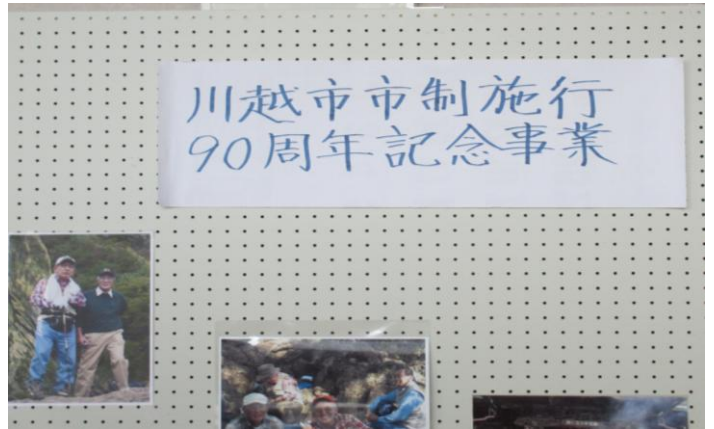 川越市市制施行
90周年記念事業